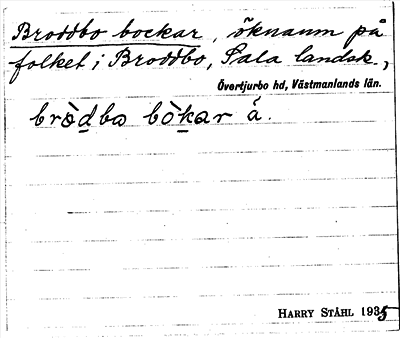 Broddbo bockar, öknamn på
folket i Broddbo, Sala landsk,
Övertjurbo hd, Västmanlands län.
brò̱dba bò̱kar á.
HARRY STÅHL 1935